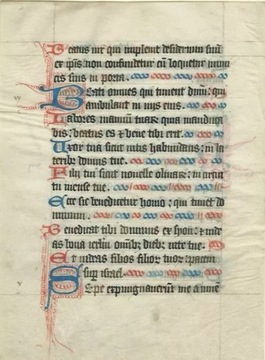 Beatus vir qui implevit desiderium suū
ex ip̄is non confundetur cū loquetur inimi
cis suis in porta.
Beati omnes qui timent dn̄m: qui
ambulant in viis eius.
Labores manuū tuaꝝ quia manduca
bis: beatus es ⁊ bene tibi erit.
Uxor tua sicut vitis habundans: in la
terib' domus tue.
Filii tui sicut novelle olivaꝝ: in circui
tu mense tue.
Ecce sic benedicetur homo: qui timet do
minum.
Benedicat tibi dominus ex syon: et vide
as bona ierl̄m omīb' dieb' vite tue.
Et videas filios filioꝝ tuoꝝ: pacem
sup̄ israel.
Sepe expugnaverūt me a iuven̄